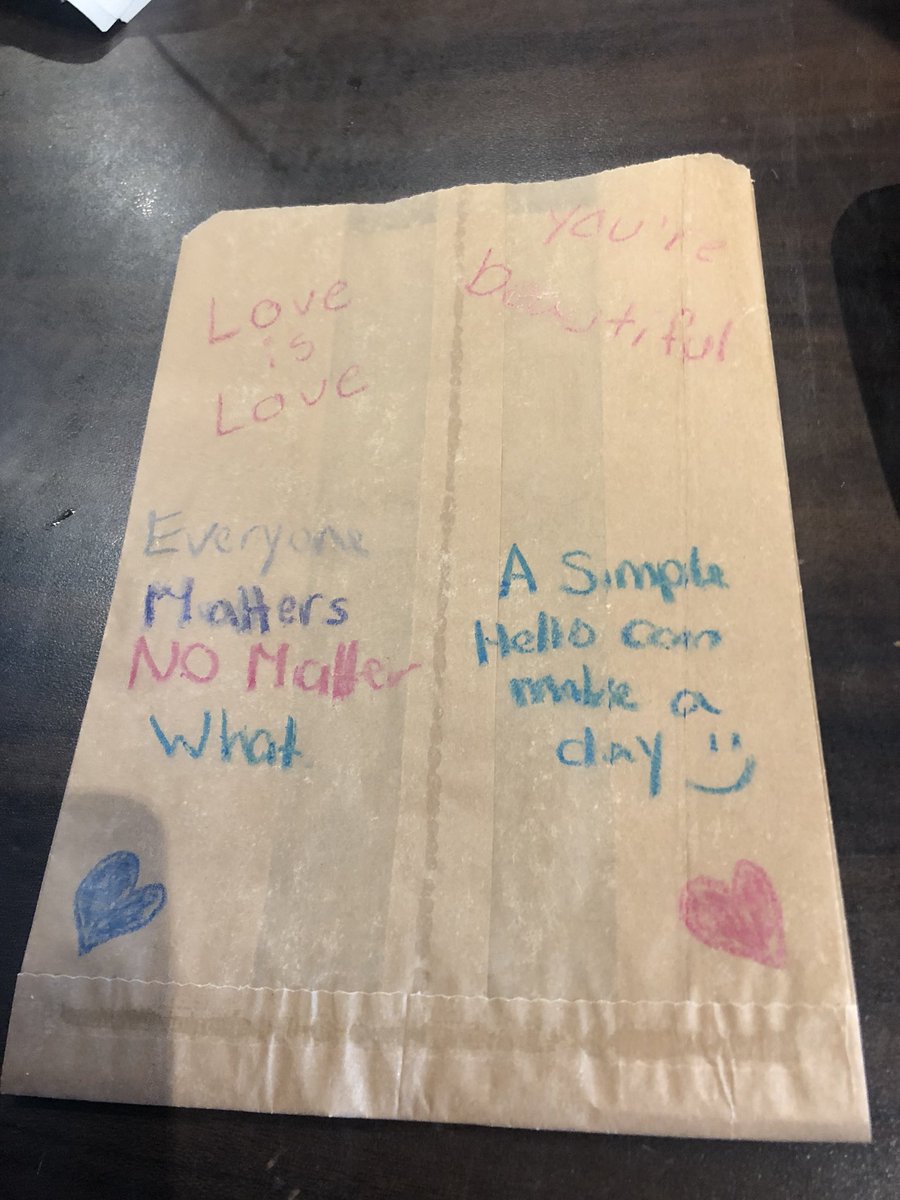 Love
is
Love
you're
beautiful
Everyone
Matters
No Matter
What
A Simple
Hello can
make a
day :)